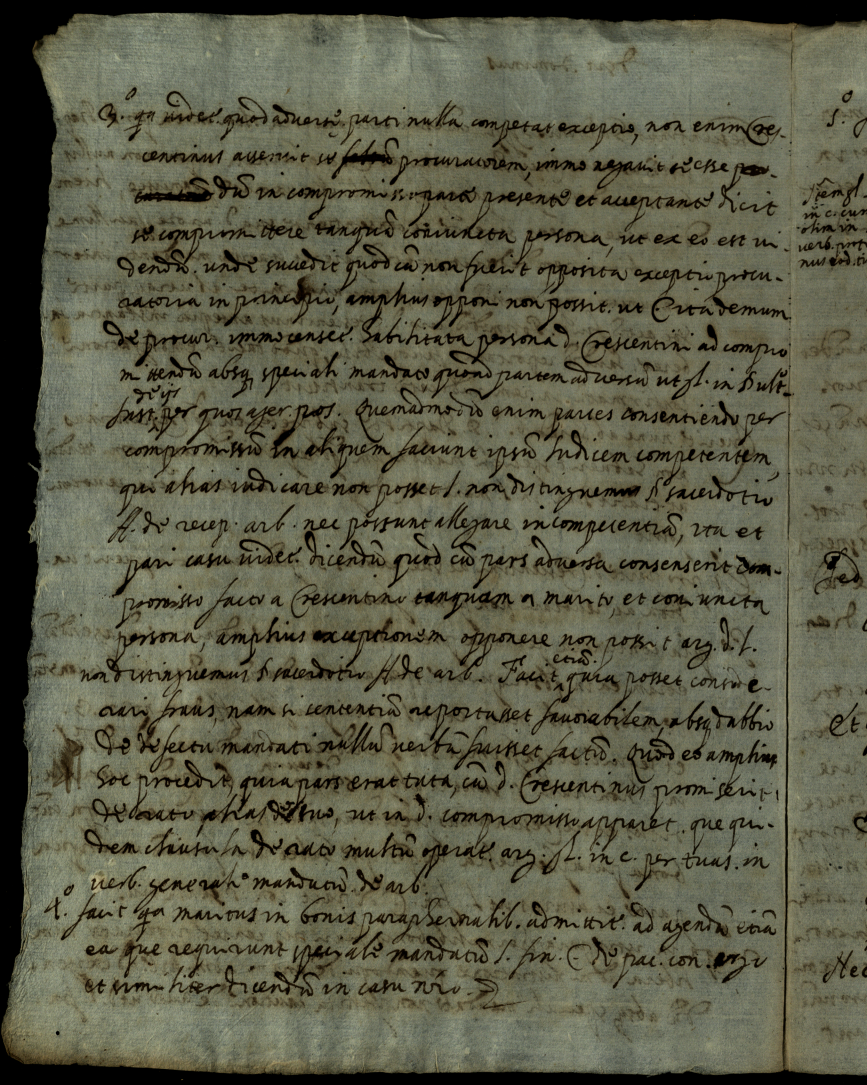 3.º qa videt. quod adverse parti nulla competat exceptio, non enim Cres-
centinus asseruit se procuratorem, immo negavit se esse
dũ in compromisso parte presente et acceptante dicit
se compromittere tanquã coniuncta persona, ut ex eo est vi-
dendũ. unde succedit quod cũ non fuerit opposita exceptio procu-
ratoria in principio, amplius opponi non possit. ut C. ita demum
de procur. immo censet. habilitata persona d. Crescentini ad compro
mittendũ absq. speciali mandato, quoad partem adversã ut gl. in
Inst. de ijs per quos ager. pos. Quemadmodũ enim partes consentiendo per
compromissũ in aliquem faciunt ipsũ Iudicem competentem,
qui alias iudicare non posset l. non distinguemus § sacerdotio
ff. de recep. arb. nec possunt allegare incompetentiã, ita et
pari casu videt. dicendũ quod cũ pars adversa consenserit com-
promisso facto a Crescentino tanquam a marito, et coniuncta
persona, amplius exceptionem opponere non possit arg. d. l.
non distinguemus § sacerdotio ff de arb. Facit etiã quia posset conside-
rari fraus, nam si sententiã reportasset favorabilem, absq. dubbio
de defectu mandati nullũ verbũ fuisset factũ. Quod eo amplius
hoc procedit, quia pars erat tuta, cũ d. Crescentinus promiserit
de rato, ut in d. compromisso apparet. que qui-
dem clausula de rato multũ operat. arg. gl. in c. per tuas. in
verb. generale mandatũ. de arb.
4.º facit qa maritus in bonis paraphernalib. admittit. ad agendũ etiã
ea que requirunt speciale mandatũ l. fin. C. de pac. con. ergo
et similiter dicendũ in casu nro.
5.º
in c. cum
olim in
verb.
Sed
Et
Nec